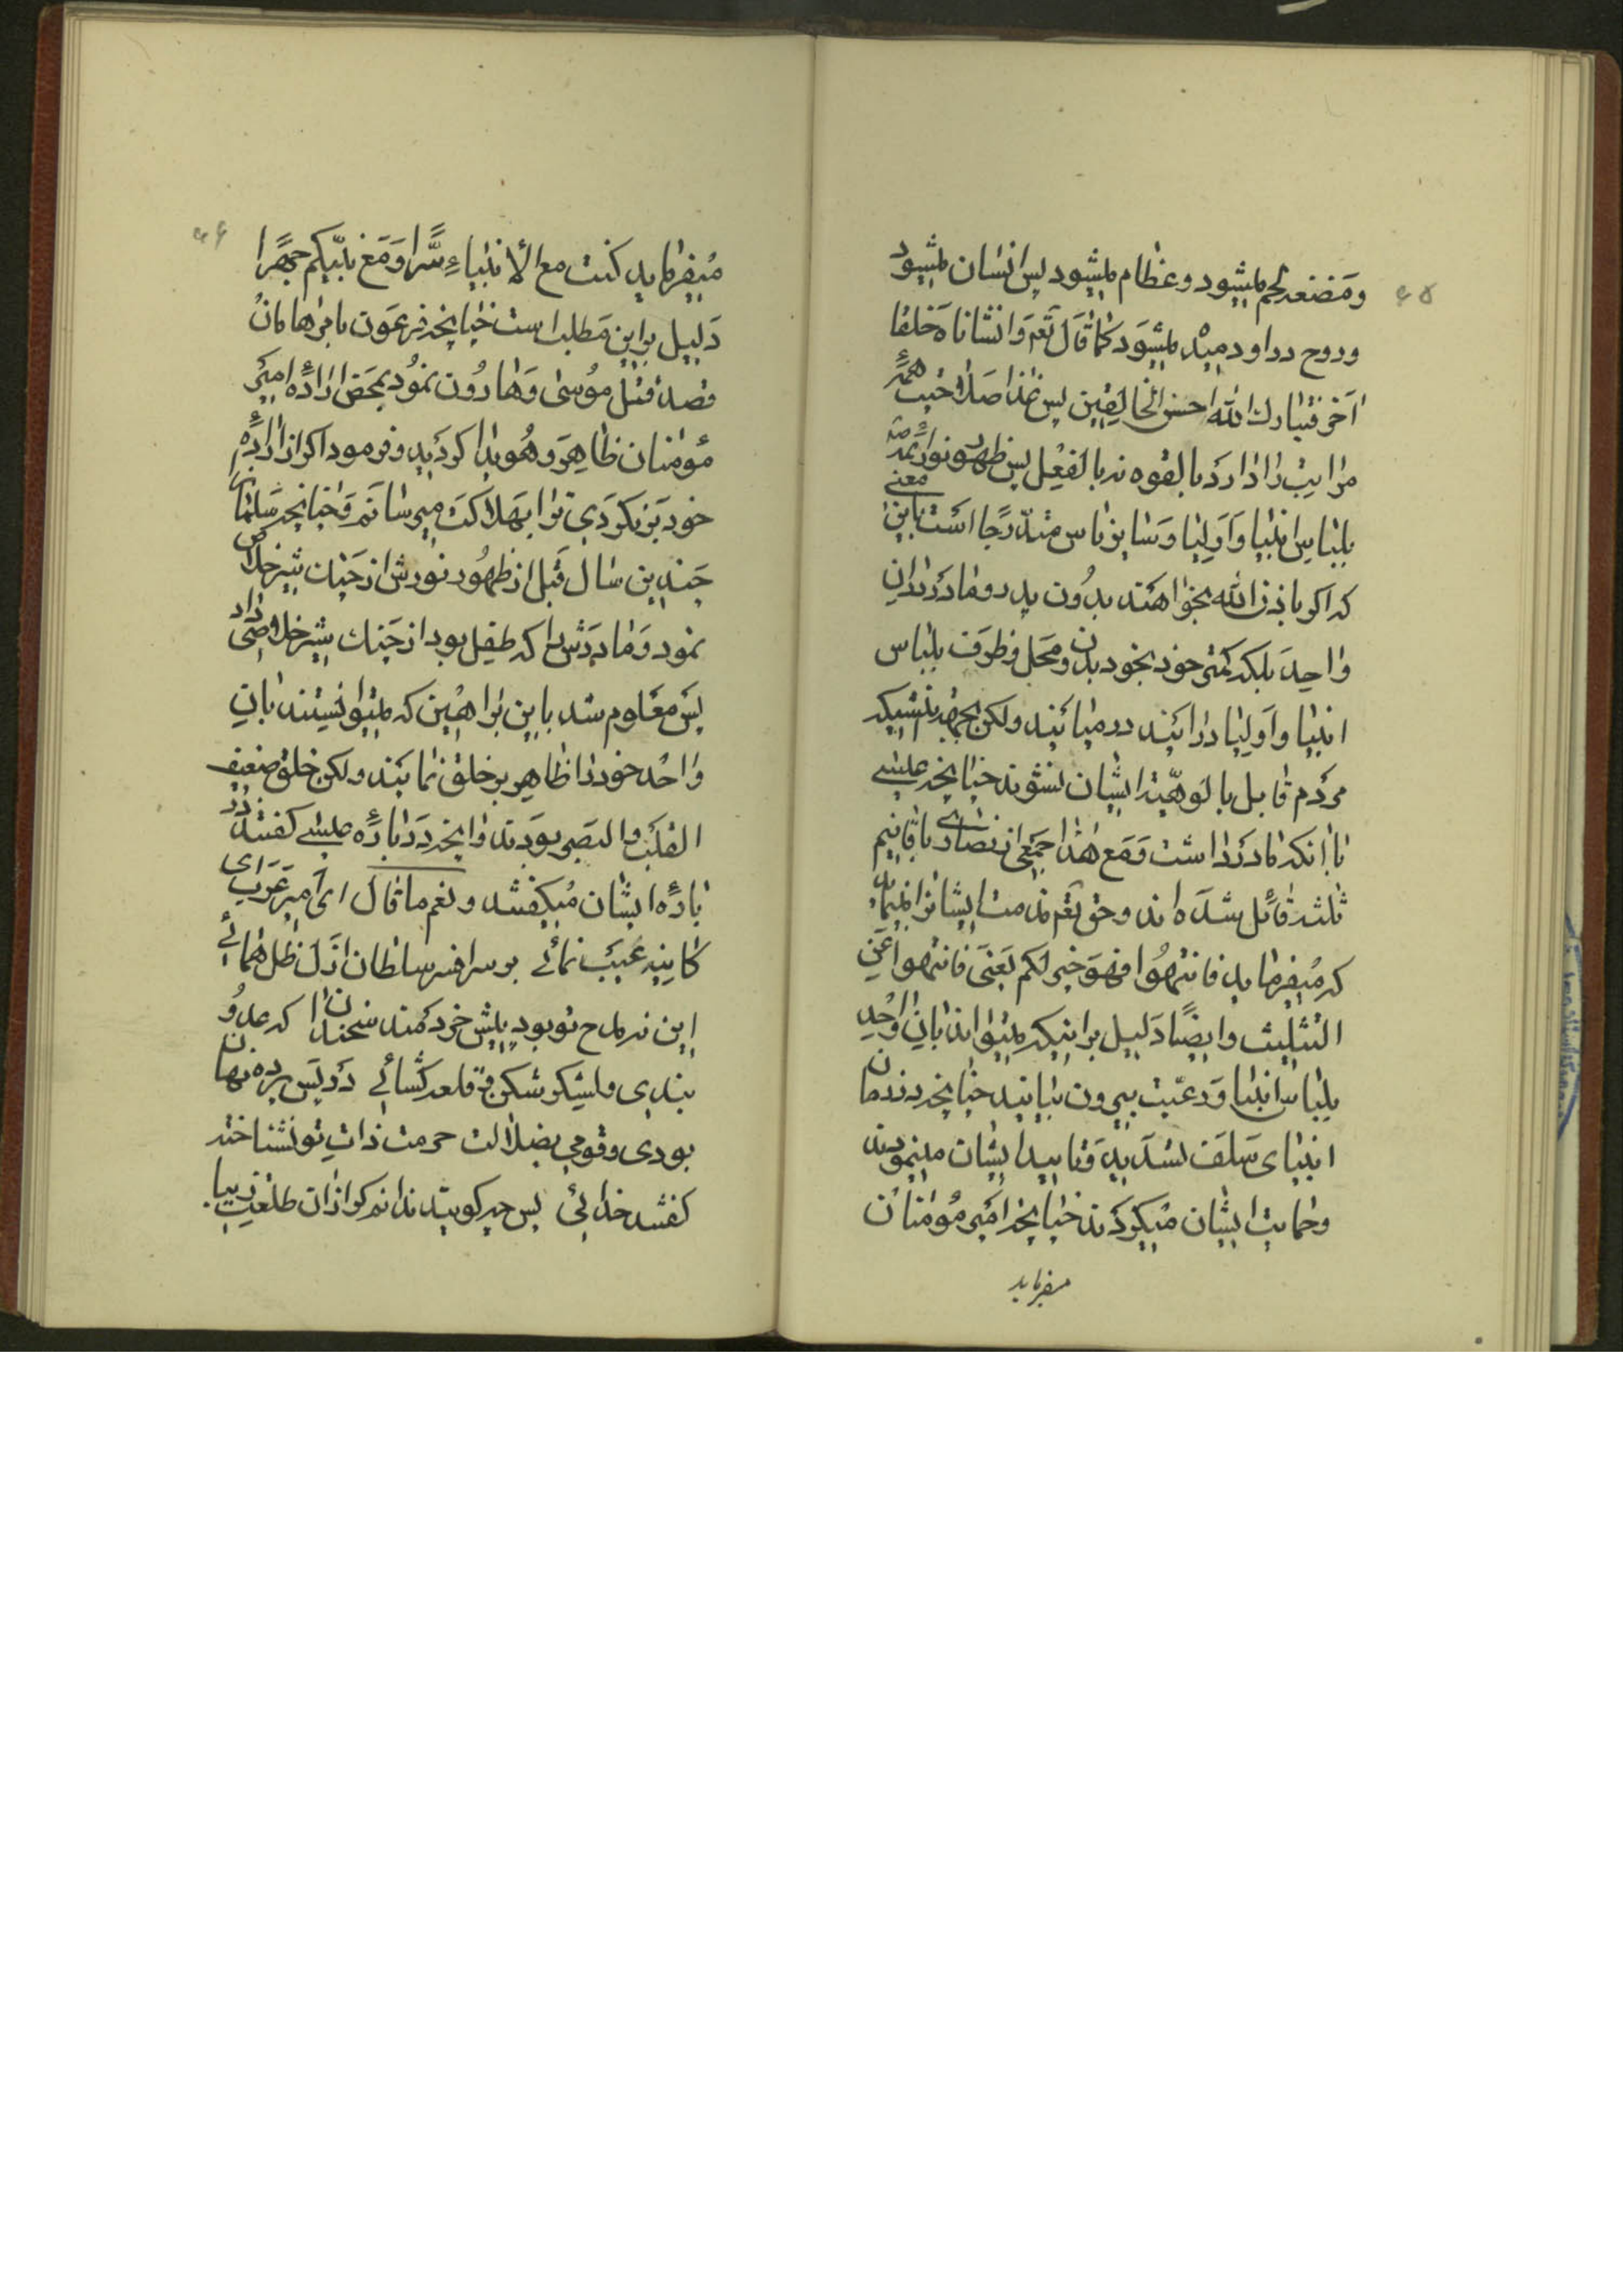 ۶۵
ومضغه لحم میشود وعظام میشود پس انسان میشود
وروح در او دمیده میشود کما قال تعم وانشاناه خلقا
اخر فتبارك الله احسن الخالقین پس غذا صلاحیت همهٔ
مراتب را دارد بالقوه نه بالفعل پس ظهور نور ائمه
بلباس انبیا و اولیا و سایر ناس متدرجا است باین معنی
که اکر باذن الله بخواهند بدون پدر و مادر در ان
واحد بلکه کمتر خود بخود بدن و محل و ظرف بلباس
انبیا و اولیا در ایند در میایند ولکن بجهة اینکه
مردم قایل بالوهیت ایشان نشوند چنانچه عیسی
با انکه مادر داشت و مع هذا جمعی از نصاری باقانیم
ثلثه قائل شده اند و حق تعم مذمت ایشانرا
که میفرماید فانتهوا فهو خیر لکم یعنی فانتهوا عن
التثلیث و ایضا دلیل بر اینکه میتوانند بان واحد
بلباس انبیا و رعیت بیرون بیایند چنانچه در زمان
انبیای سلف نشدید و تایید ایشان مینمودند
و حمایت ایشان میکردند چنانچه امیر مؤمنان
میفرماید
۶۶
میفرماید کنت مع الانبیاء سرا و مع نبیکم جهرا
دلیل بر این مطلب است چنانچه فرعون بامر هامان
قصد قتل موسی و هارون نمود بمحض ارادهٔ امیر
مؤمنان ظاهر و هویدا کردید و فرمود اکر از ارادهٔ
خود برنکردی ترا بهلاکت میرسانم و چنانچه سلمانرا
چندین سال قبل از ظهور نورش از چنك شیر خلاص
نمود و مادرش را که طفل بود از چنك شیر خلاصی داد
پس معلوم شد باین براهین که میتوانستند بان
واحد خود را ظاهر بر خلق نمایند ولکن خلق ضعیف
القلب و البصر بودند و انچه در بارهٔ عیسی کفتند در
بارهٔ ایشان میکفتند و نعم ما قال ای امیر عرب ای
کاینه غیب نمائی بر سر افسر سلطان ازل ظل همائی
این نه مدح تو بود پیش خردمند سخندان که عدو
بندی و لشکر شکن و قلعه کشائی در پس پرده نهان
بودی و قومی بضلالت حرمت ذات تو نشناخته
کفتند خدائی پس چه کویند ندانم کر از ان طلعت زیبا